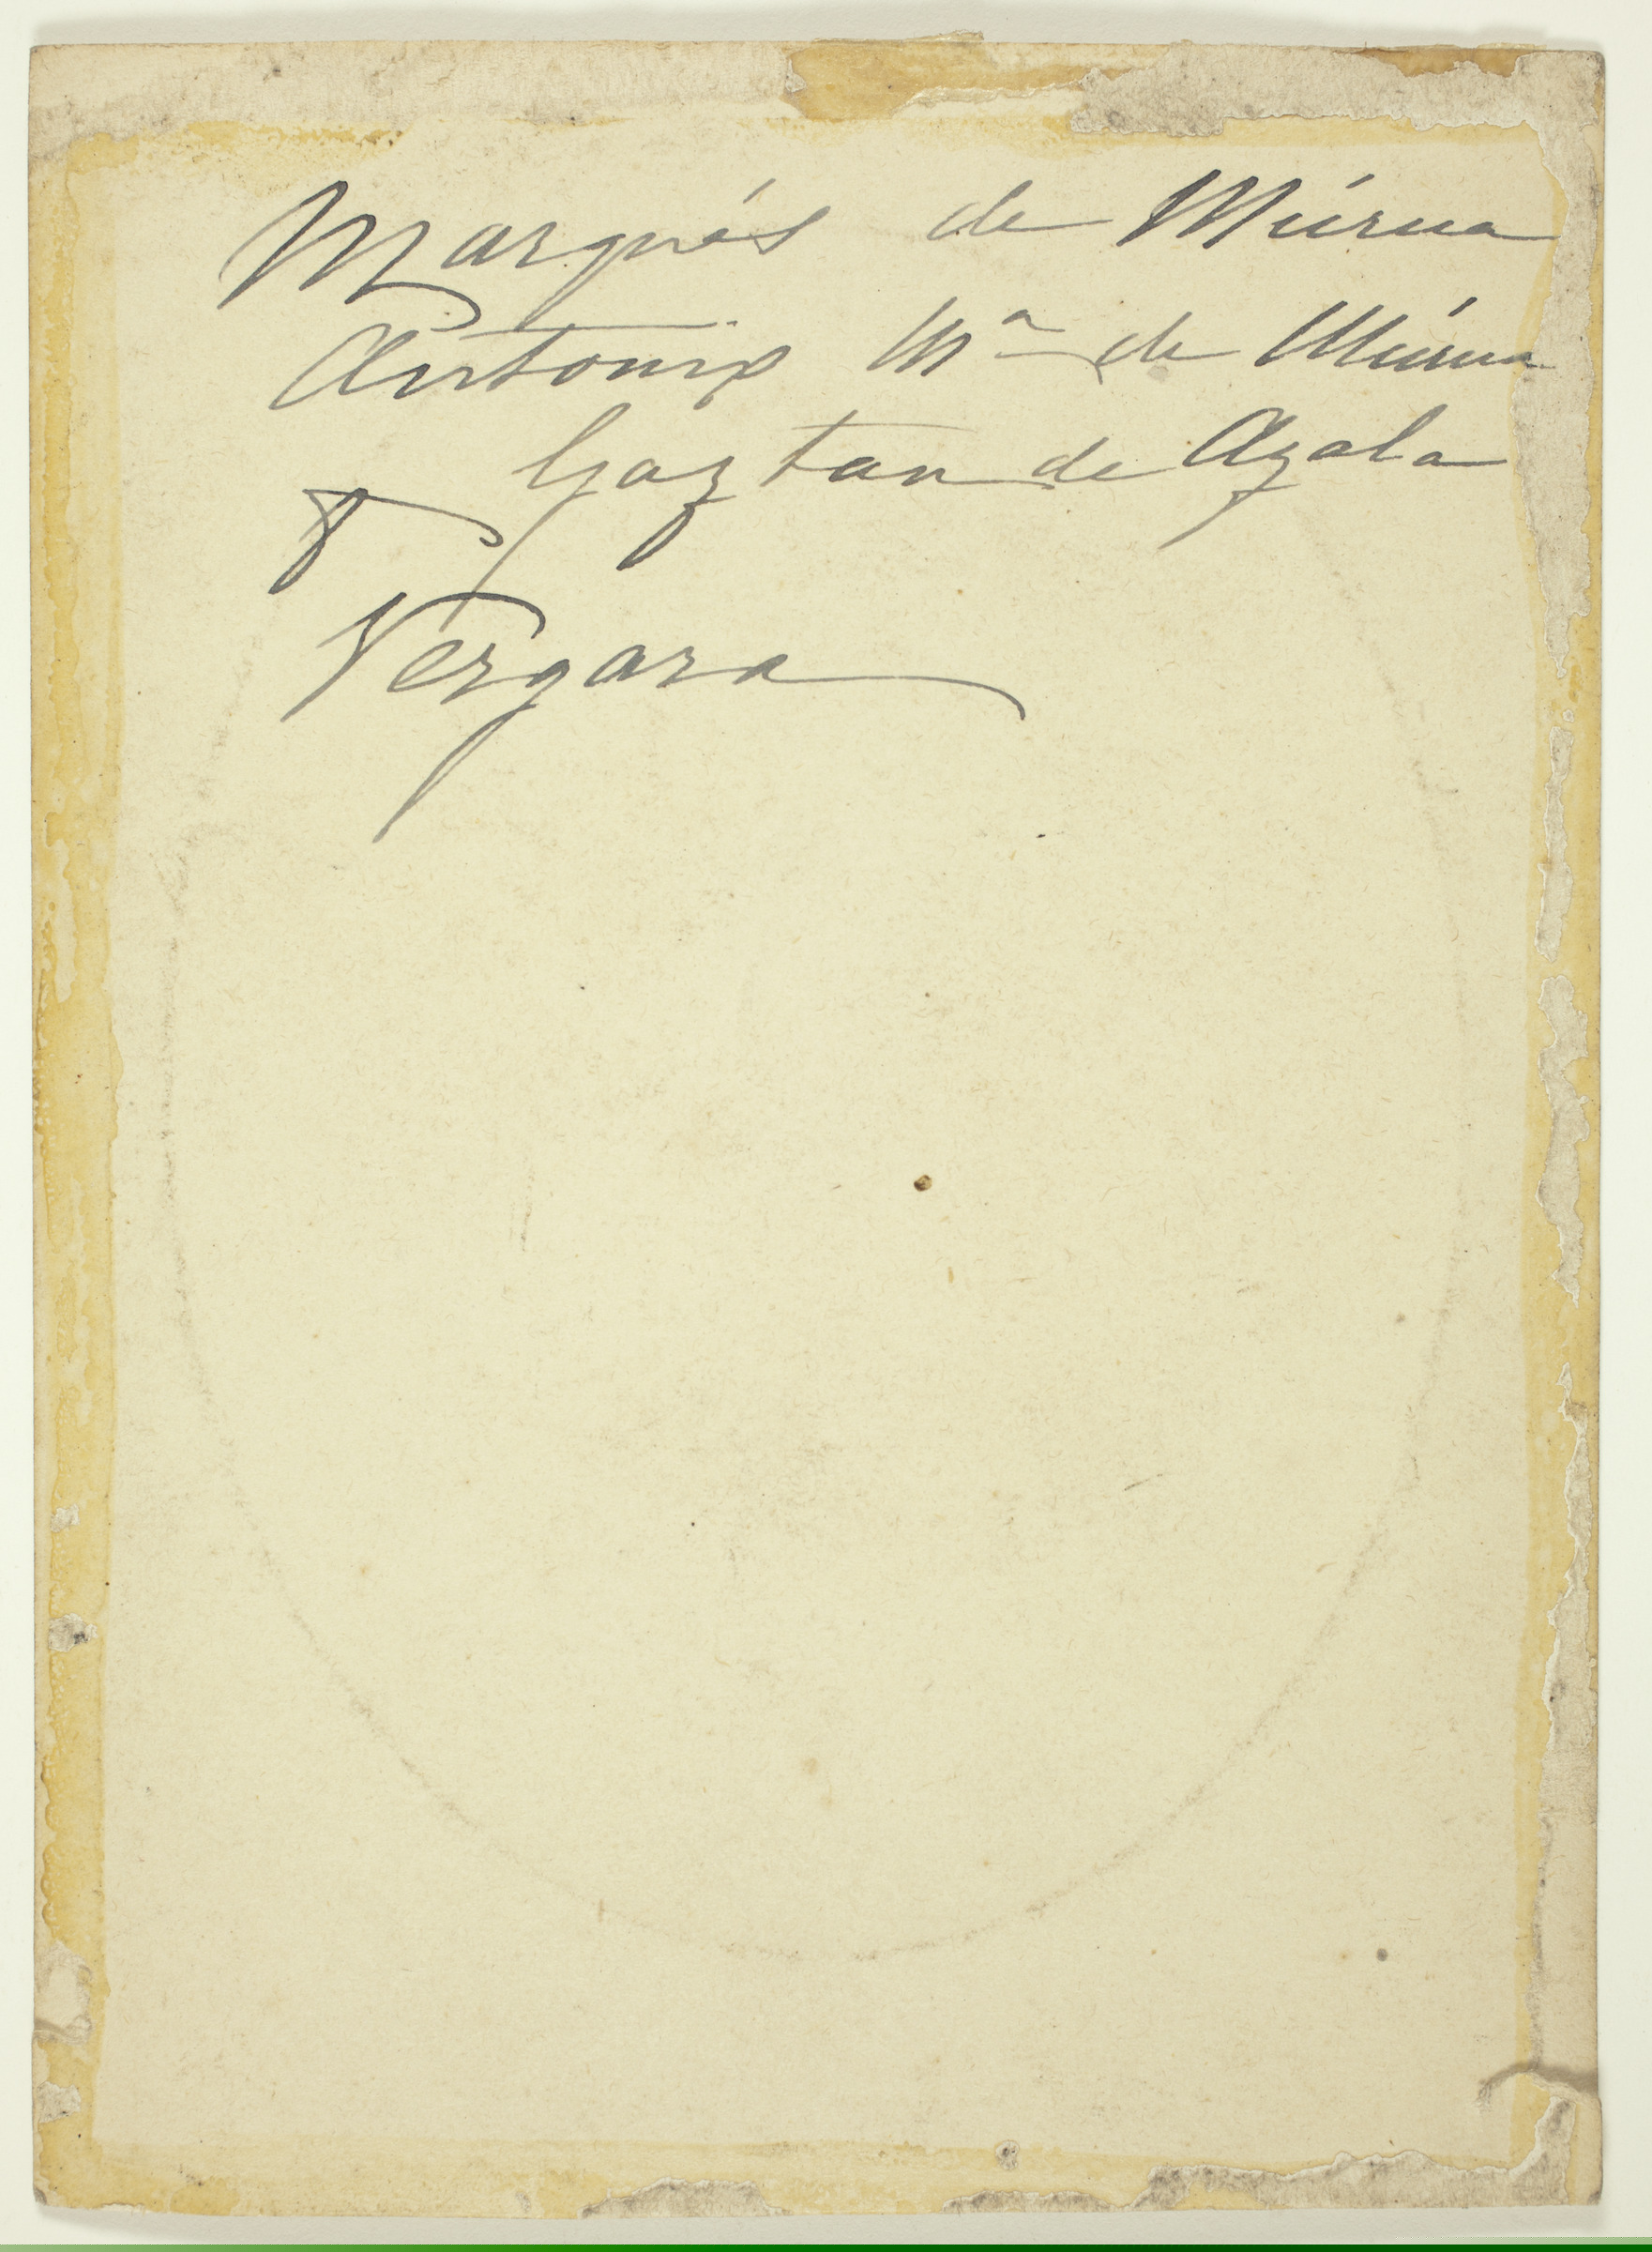 Marqués de Múrua
Antonio Mª de Múrua
Gaztan de Ayala
Vergara